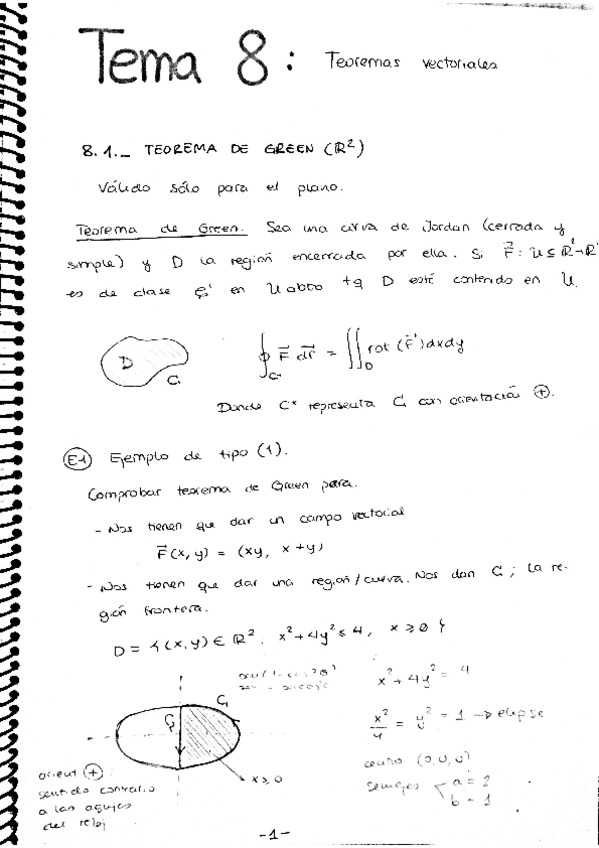 Tema 8: Teoremas vectoriales
8.1._ TEOREMA DE GREEN (ℝ²)
Válido sólo para el plano.
Teorema de Green. Sea una curva de Jordan (cerrada y
simple) y D la región encerrada por ella. Si F⃗: U ⊆ ℝ²→ℝ²
es de clase C¹ en U abto tq D esté contenido en U.
D
C
∮_C* F⃗ · dr⃗ = ∬_D rot (F⃗) dxdy
Donde C* representa C con orientación ⊕.
E1 Ejemplo de tipo (1).
Comprobar teorema de Green para.
- Nos tienen que dar un campo vectorial
F⃗(x, y) = (xy, x+y)
- Nos tienen que dar una región/curva. Nos dan C; la re-
gión frontera.
D = {(x, y) ∈ ℝ². x²+4y² ≤ 4, x ≥ 0}
x² + 4y² = 4
C₁
x²/4 = y² = 1 → elipse
x ≥ 0
centro (0,0,0)
semiejes a = 2
b = 1
orient ⊕
sentido contrario
a las agujas
del reloj
-1-